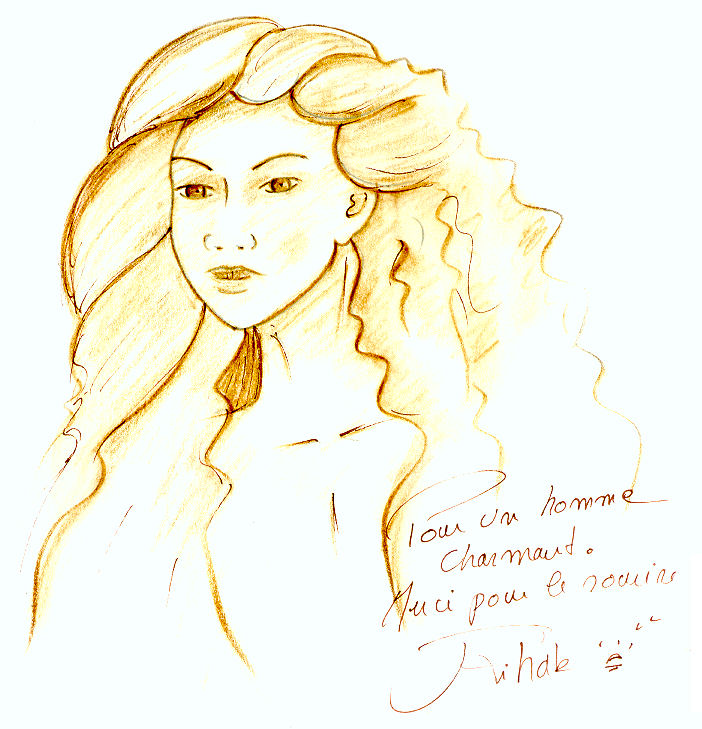 Pour un homme
charmant.
Merci pour le sourire